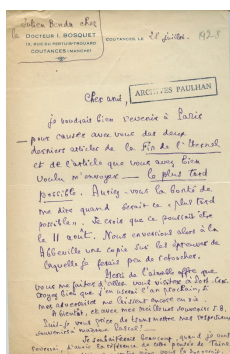 Julien Benda chez
le DOCTEUR I. BOSQUET
12, RUE DU PERTUIS-TROUARD
COUTANCES (MANCHE)
COUTANCES, LE 28 juillet 1928
ARCHIVES PAULHAN
Cher ami,
je voudrais bien revenir à Paris
pour causer avec vous des deux
derniers articles de la Fin de l'Eternel
et de l'article que vous avez bien
voulu m'envoyer — le plus tard
possible. Auriez-vous la bonté de
me dire quand serait ce "plus tard
possible". Je crois que ce pourrait être
le 11 août. Nous enverrions alors à
Abbeville une copie sur les épreuves de
laquelle je ferais peu de retouches.
Merci de l'aimable offre que
vous me faites d'aller vous visiter à Port-Cros.
Croyez bien que j'en userai l'an prochain, si
mes adversaires me laissent encore en vie
A bientôt, et avec mes meilleurs souvenirs J.B.